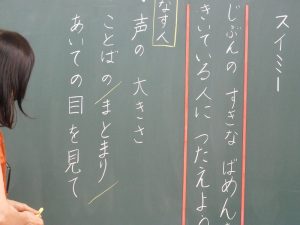 スイミー
じぶんの すきな ばめんを
きいている人に つたえよう
なす人
声の 大きさ
ことばの まとまり
あいての目を見て